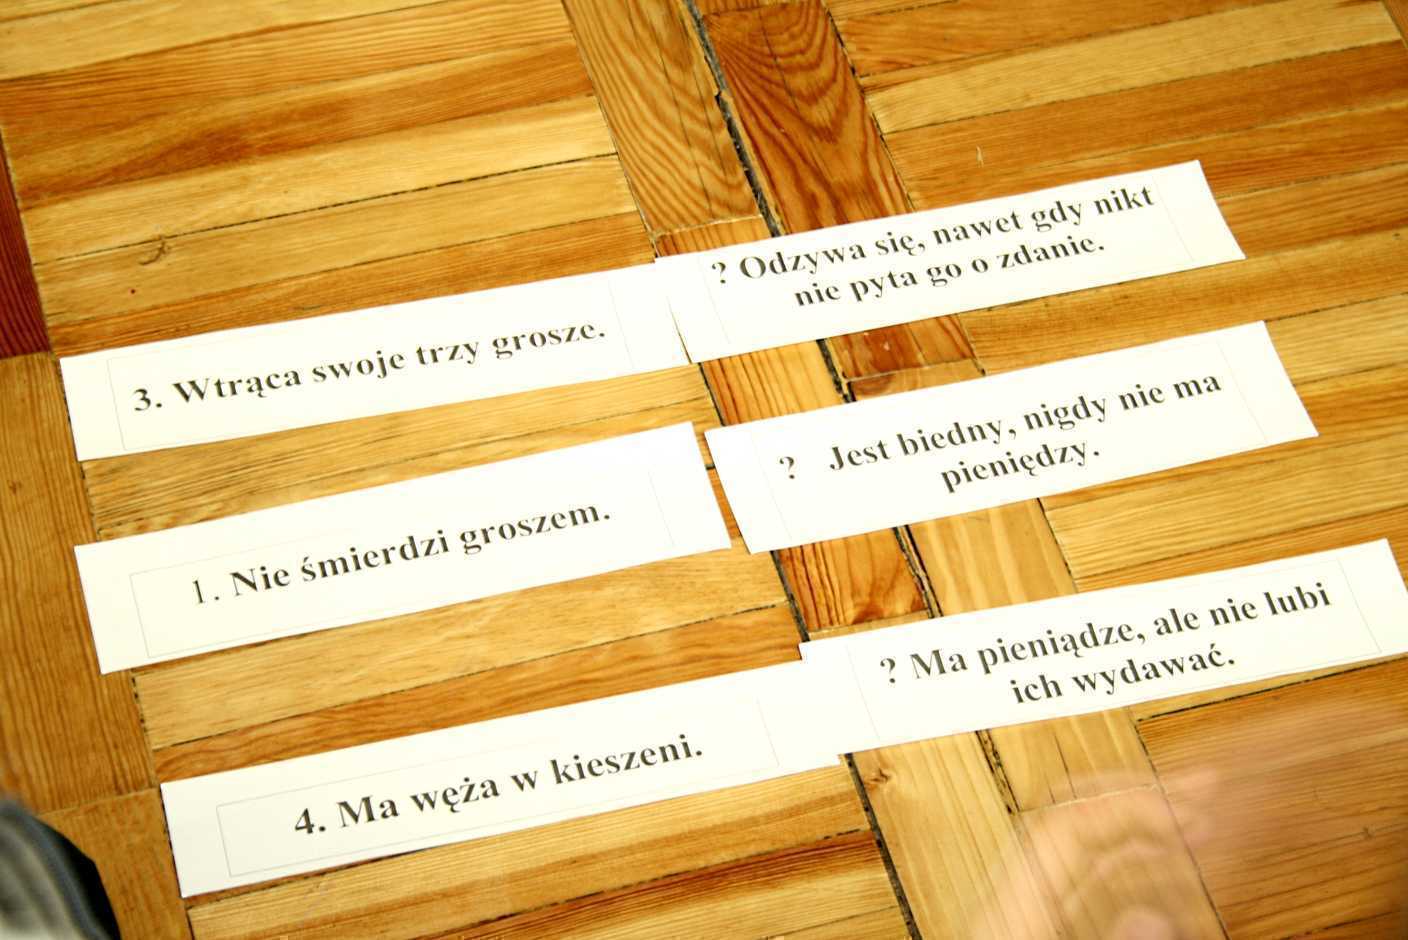 3. Wtrąca swoje trzy grosze.
? Odzywa się, nawet gdy nikt
nie pyta go o zdanie.
1. Nie śmierdzi groszem.
? Jest biedny, nigdy nie ma
pieniędzy.
4. Ma węża w kieszeni.
? Ma pieniądze, ale nie lubi
ich wydawać.